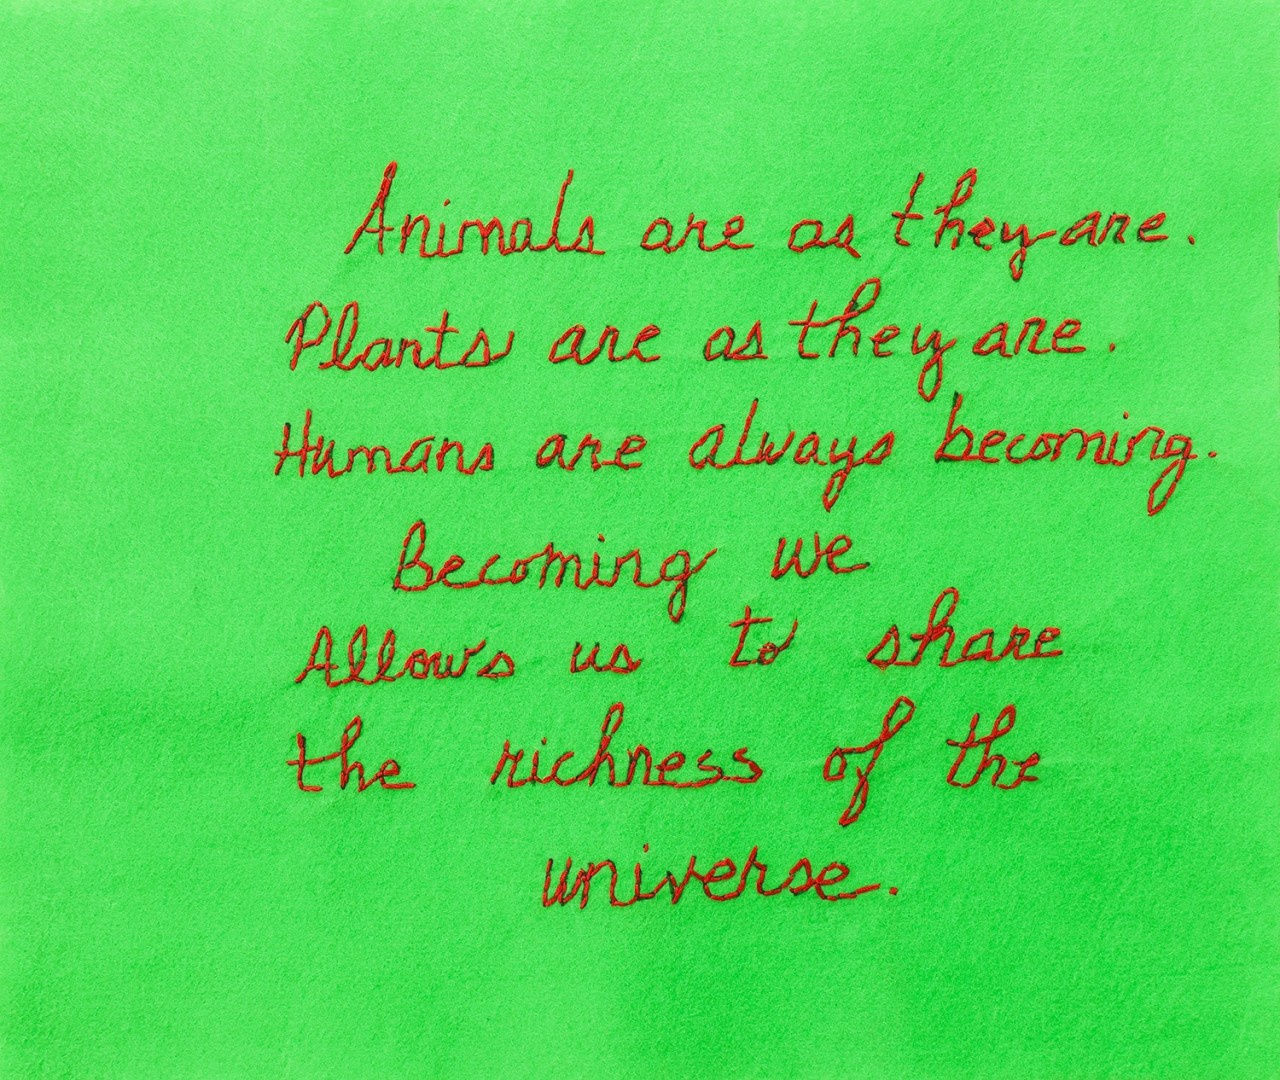 Animals are as they are.
Plants are as they are.
Humans are always becoming.
Becoming we
Allows us to share
the richness of the
universe.